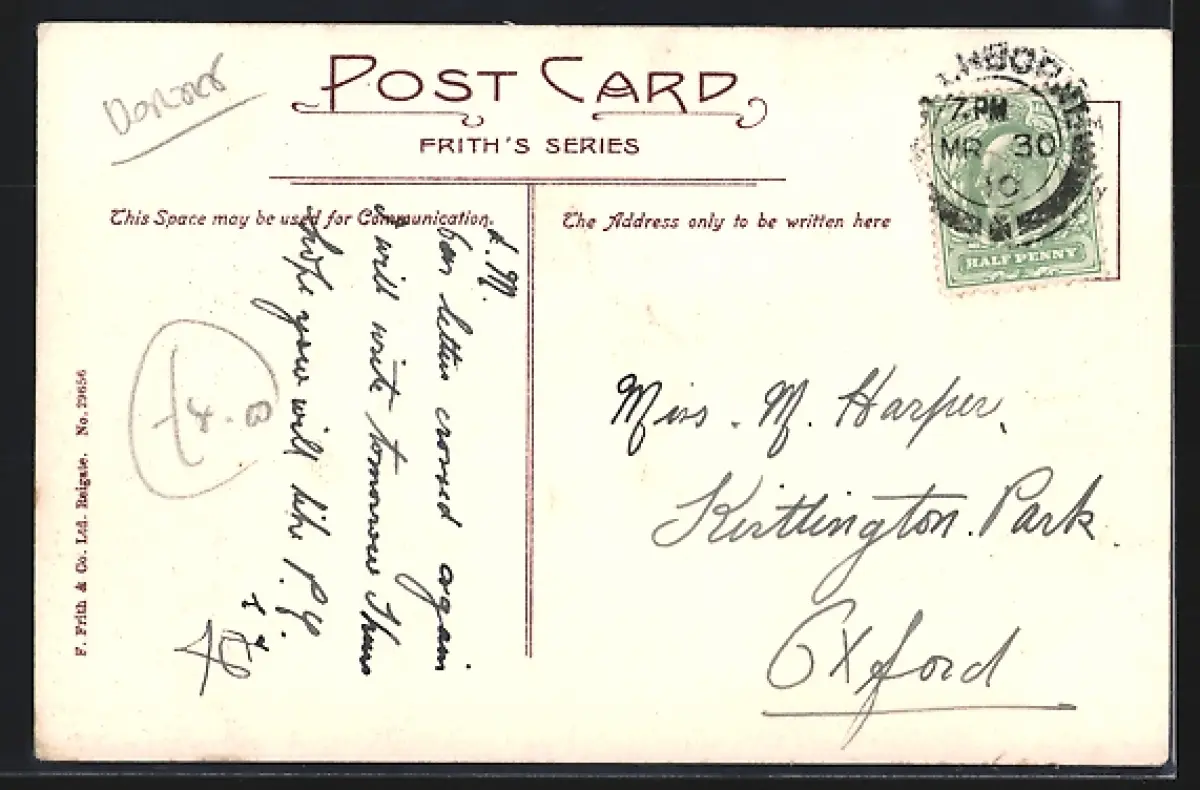 POST CARD
FRITH'S SERIES
This Space may be used for Communication.
The Address only to be written here
7. PM
MR 30
10
HALF PENNY
d. M.
Our letters crossed again
will write tomorrow Thurs
hope you will like P.
Miss. M. Harper,
Kirtlington. Park.
Oxford
F. Frith & Co. Ltd. Reigate. No. 29656